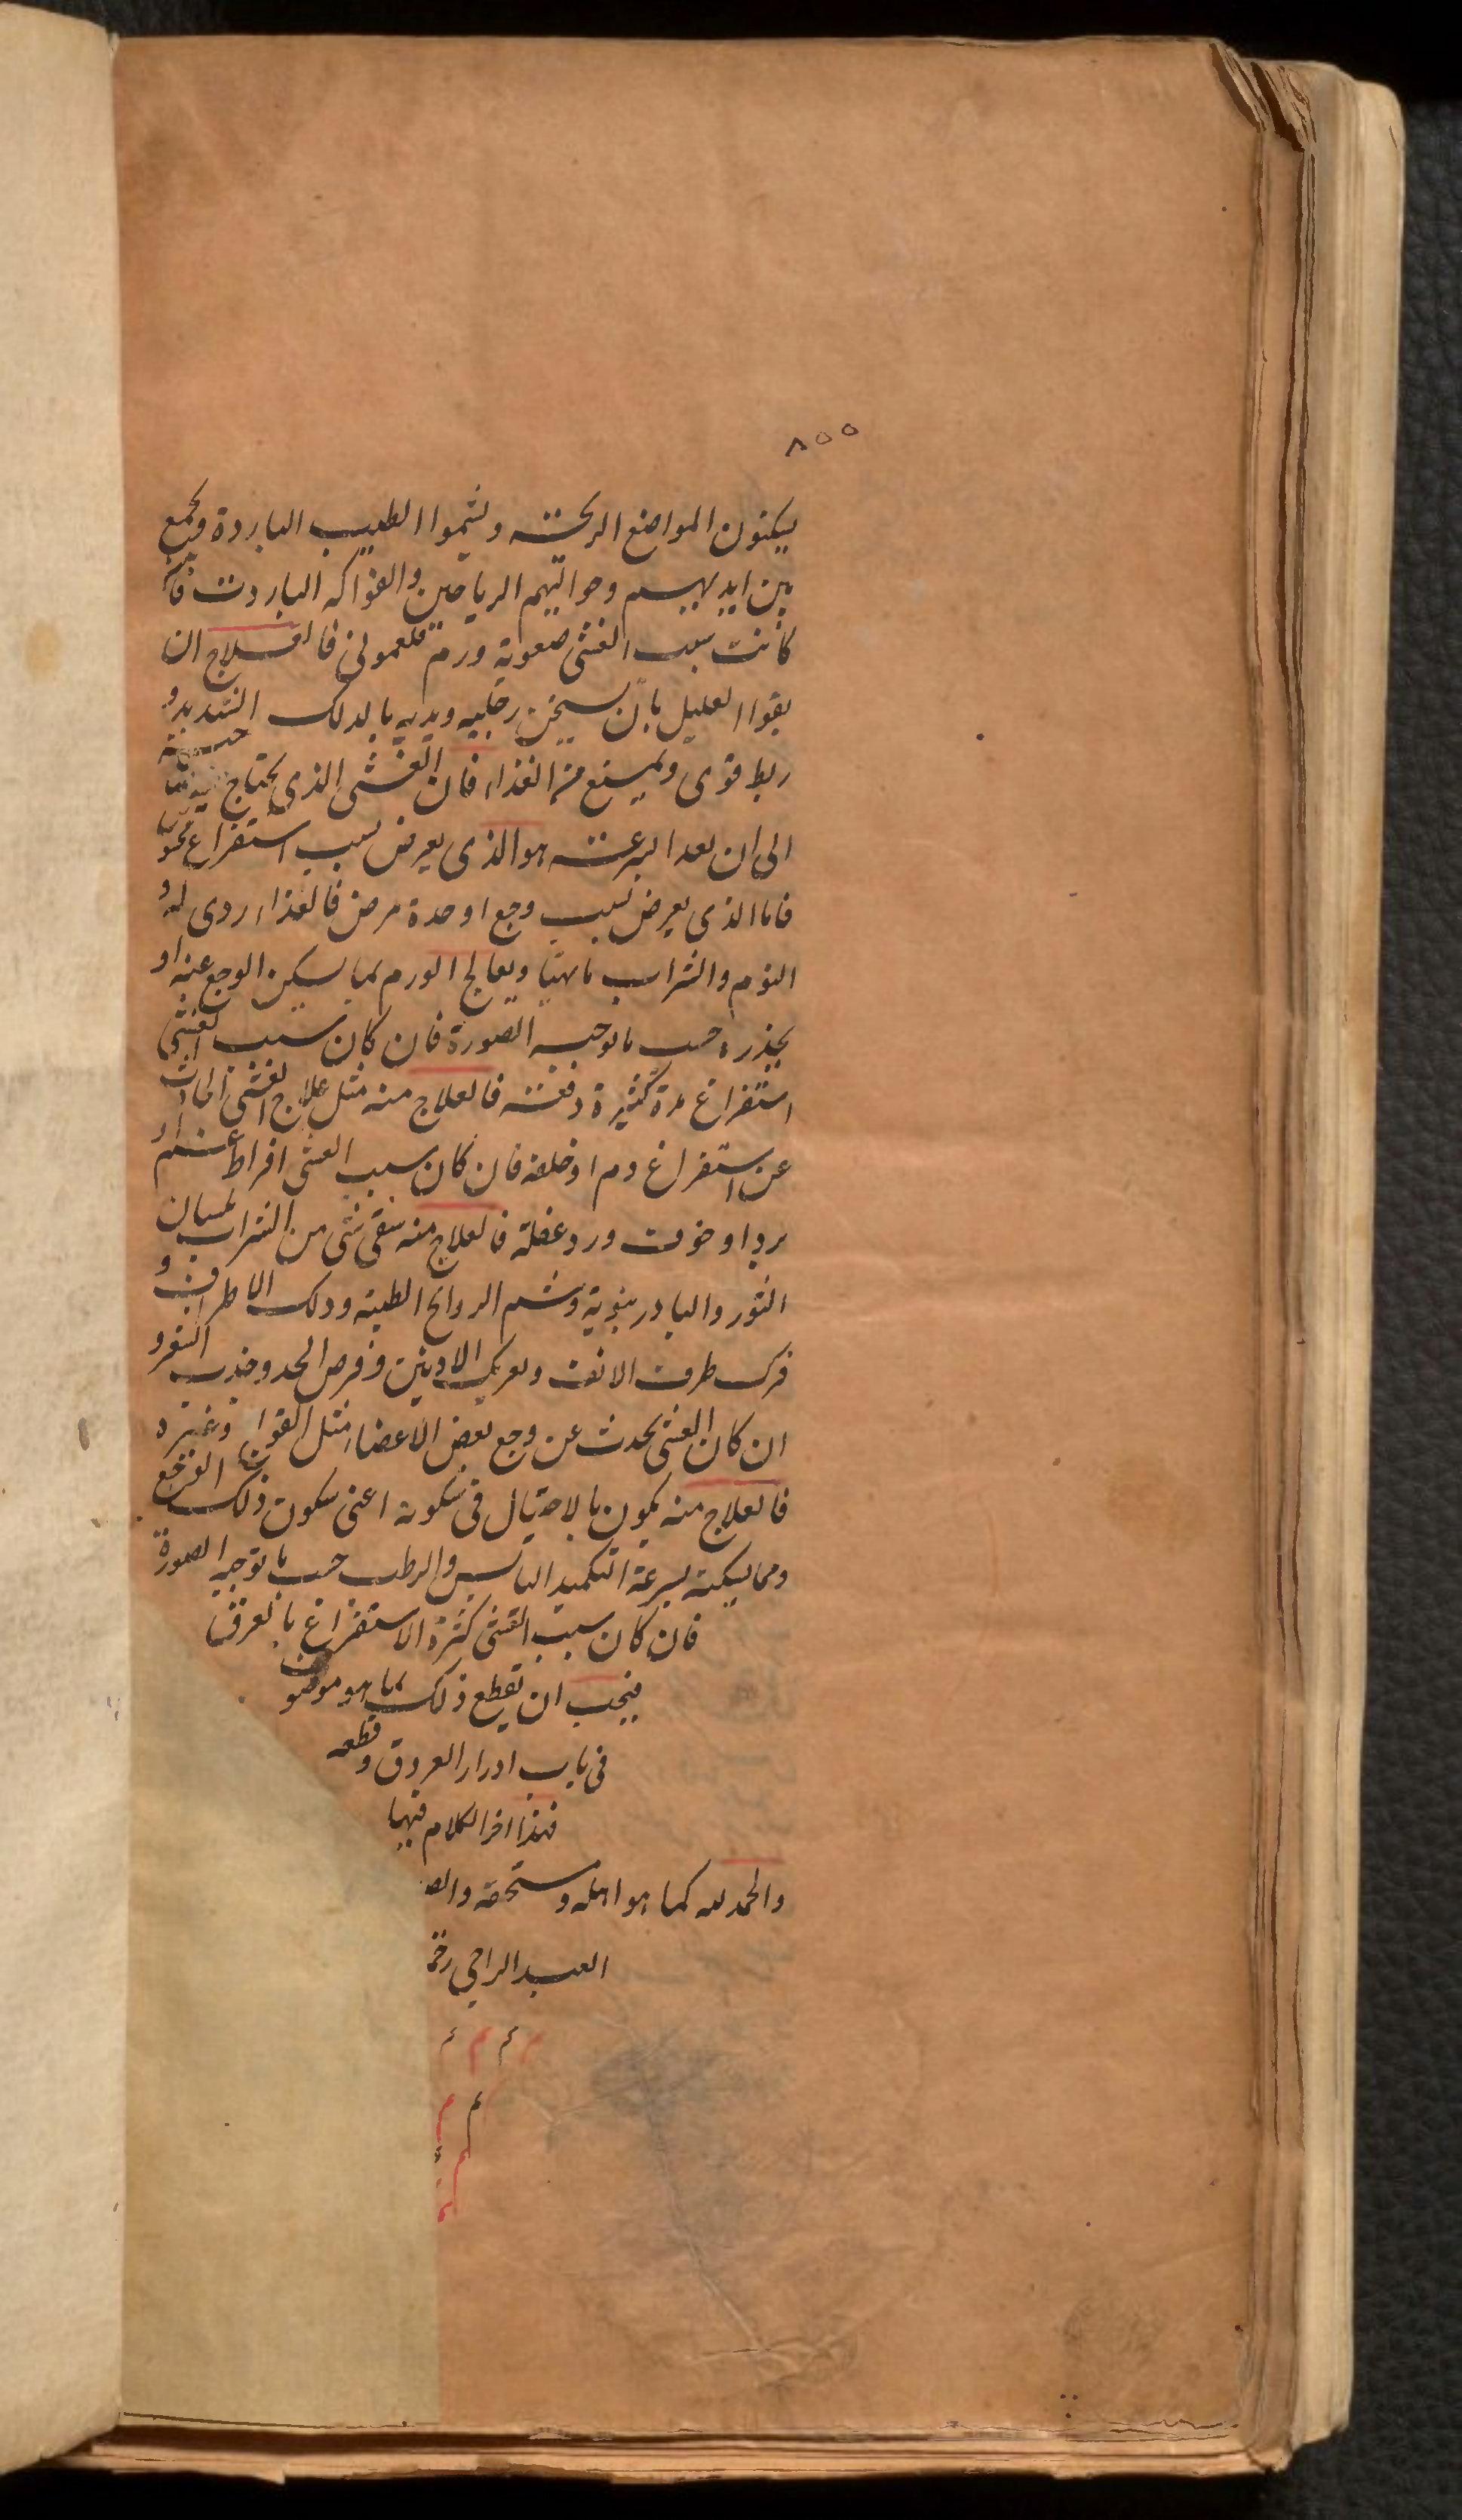 ٨٥٥
يسكنون المواضع الريحته ويشموا الطيب الباردة ويجمع
بين ايديهم وحواليهم الرياحين والفواكه الباردت فان
كانت سبب الغشى صعوبة ورم فلعمولى فالعلاج ان
يقوا العليل بان يسخن رجليه ويديه بالدلك الشديد و
ربط قوى ويمنع من الغذاء فان الغشى الذى يحتاج
الى ان بعد السرعته هو الذى يعرض بسبب استفراغ
فاما الذى يعرض بسبب وجع او حدة مرض فالغذاء ردى له و
النوم والشراب ويعالج الورم بما يسكن الوجع عنه او
يخدره حسب ما توجبه الصورة فان كان سبب الغشى
استفراغ مرة كثيرة دفعته فالعلاج منه مثل علاج الغشى الحادث
عن استفراغ دم او خلفه فان كان سبب الغشى افراط
برد او خوف ورد غفلة فالعلاج منه سقى شى من الشراب لسان
الثور والبادرنبوية وشم الروائح الطيبه ودلك الاطراف و
فرك طرف الانف وتعريك الاذنين وقرص الخد وجذب الشعر و
ان كان الغشى يحدث عن وجع بعض الاعضاء مثل القولنج وغيره
فالعلاج منه يكون بالاحتيال فى سكونه اعنى سكون ذلك الوجع
ومما يسكنه بسرعة التكميد اليابس والرطب حسب ما توجبه الصورة
فان كان سبب الغشى كثرة الاستفراغ بالعرق
فيجب ان يقطع ذلك بما هو موصوف
فى باب ادرار العروق وقطعه
فهذا اخر الكلام فيها
والحمد لله كما هو اهله ومستحقه والص
العبد الراجى رحم